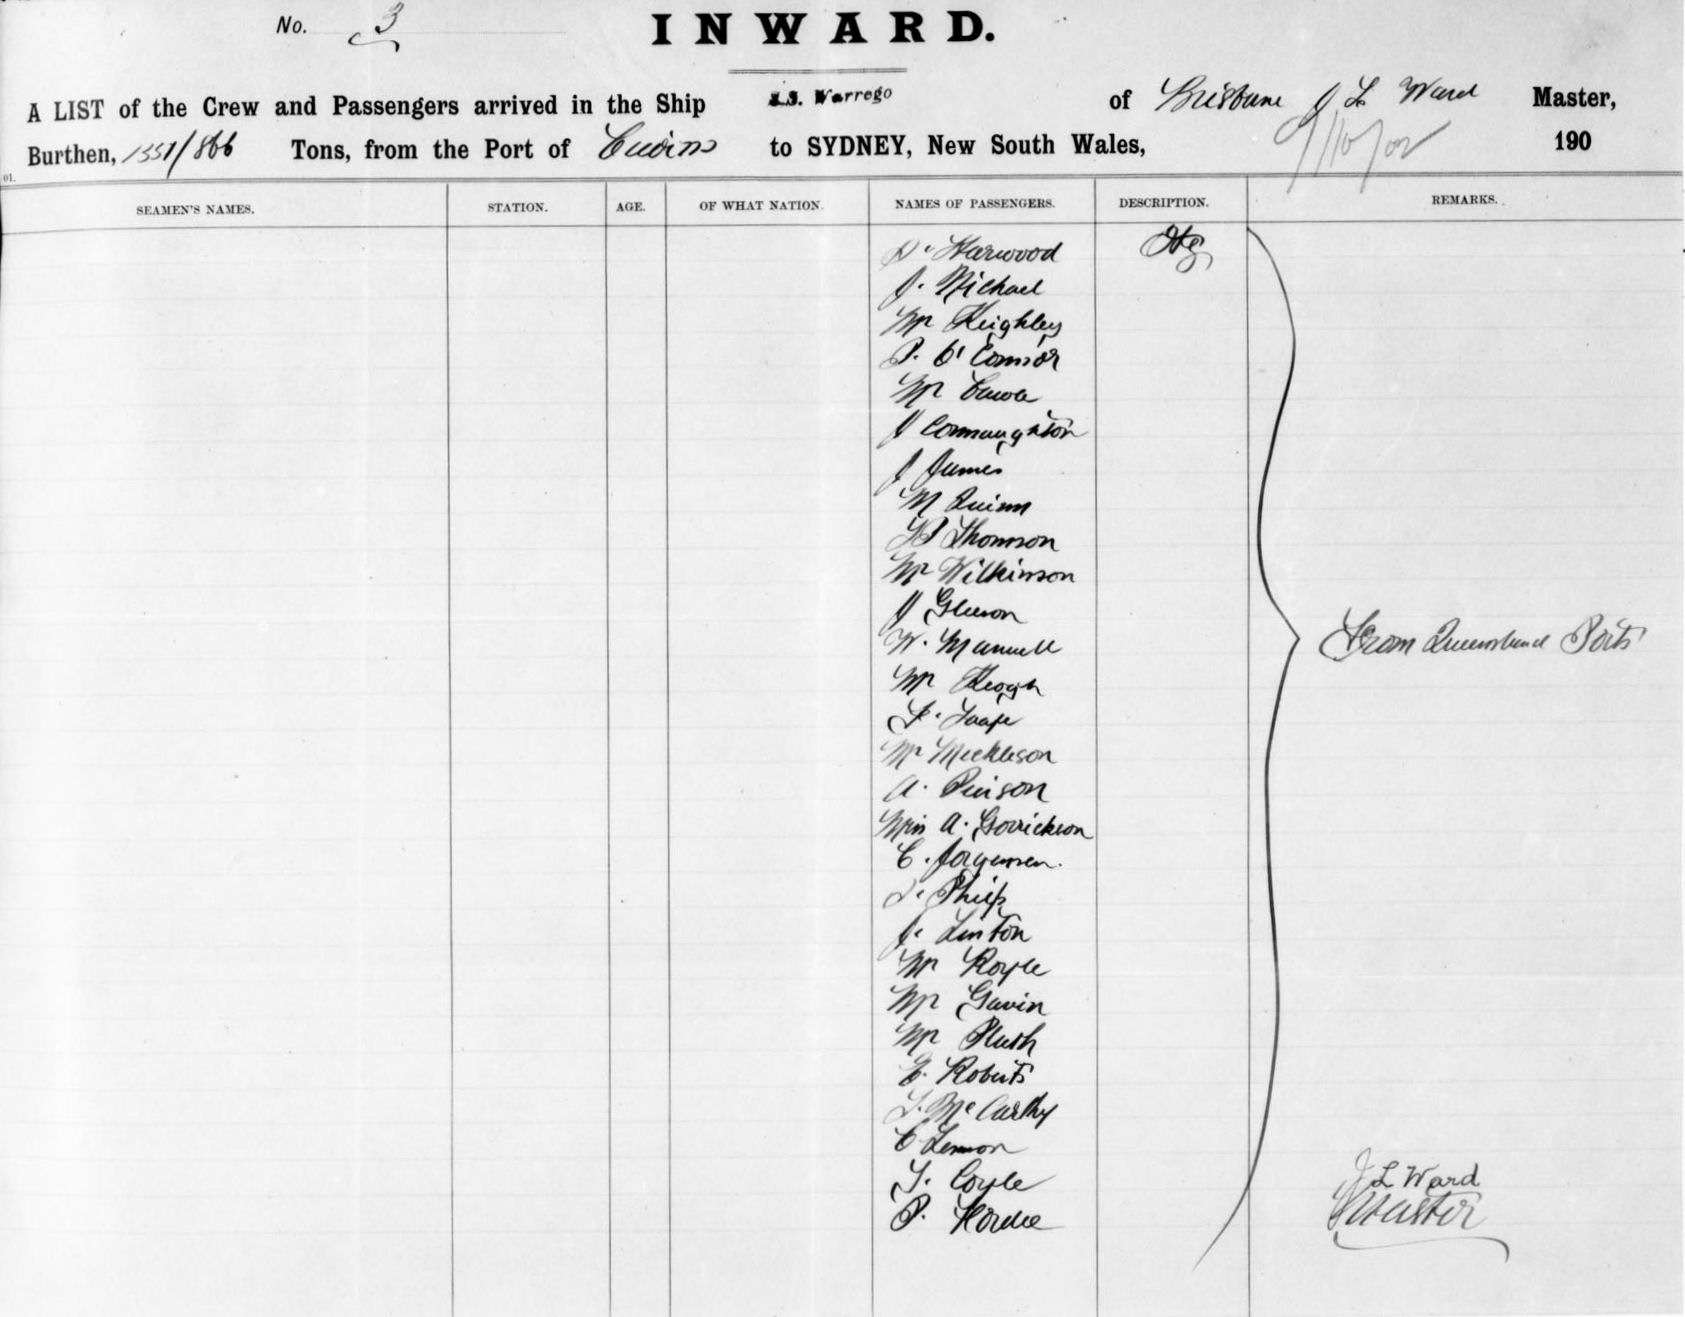 No. 3
INWARD.
A LIST of the Crew and Passengers arrived in the Ship S.S. Warrego of Brisbane J L Ward Master,
Burthen, 1551/866 Tons, from the Port of Cairns to SYDNEY, New South Wales, 9/10/02 190
01.
SEAMEN'S NAMES. STATION. AGE. OF WHAT NATION. NAMES OF PASSENGERS. DESCRIPTION. REMARKS.
D. Harwood
J. Michael
Mr Keighley
P. O'Connor
Mr
J Connaughton
J James
M Quinn
Thomson
Mr Wilkinson
J Gleeson
W.
Mr Keogh
Mr
A.
Miss A.
C. Jorgensen.
J. Linton
Mr Royle
Mr Gavin
Mr
E. Roberts
McCarthy
C Lennon
Coyle
P.
From Queensland Ports
J L Ward
Master